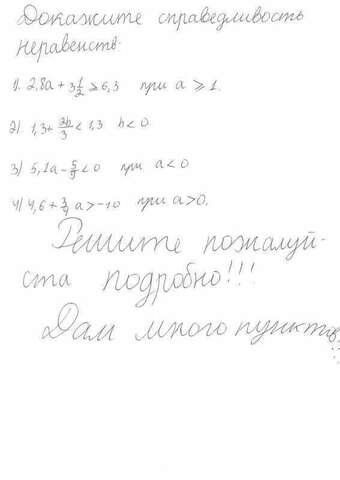 Докажите справедливость
неравенств.
1). 2,8a + 3 1/2 ⩾ 6,3 при a ⩾ 1.
2) 1,3 + 2b/3 < 1,3 b < 0
3) 5,1a - 5/9 < 0 при a < 0
4) 4,6 + 3/4 a > -10 при a > 0.
Решите пожалуй-
ста подробно!!!
Дам много пунктов